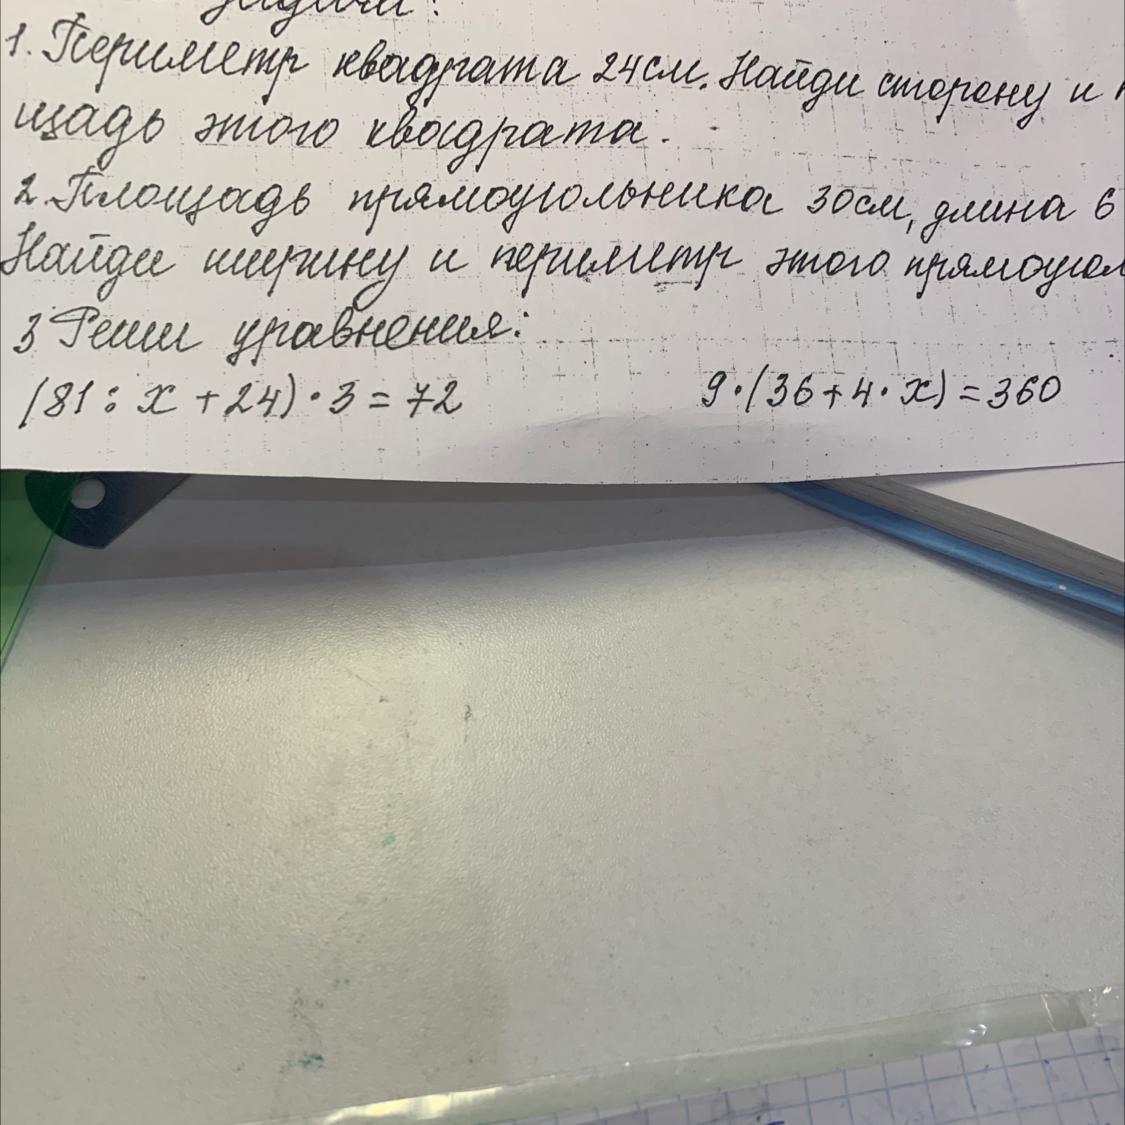 1. Периметр квадрата 24см. Найди сторону и
щадь этого квадрата.
2. Площадь прямоугольника 30см, длина 6
Найди ширину и периметр этого прямоугол
3 Реши уравнения:
(81 : x + 24) · 3 = 72 9 · (36 + 4 · x) = 360